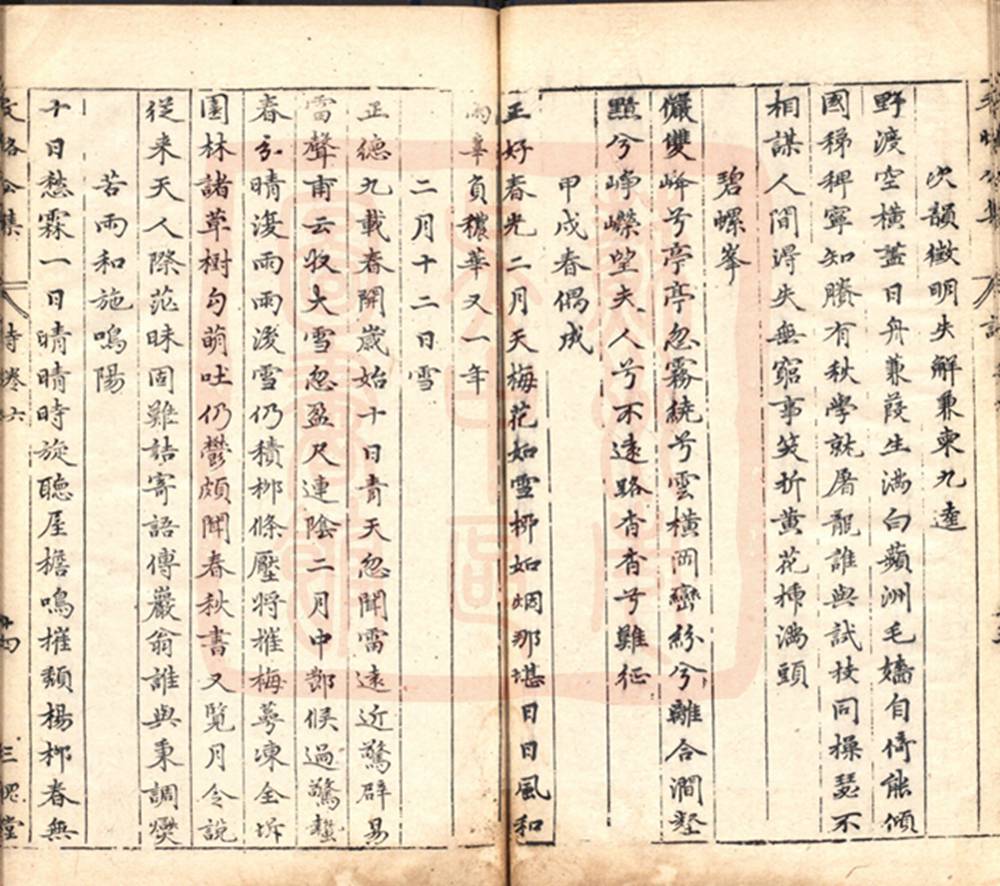 次韻徵明失解兼柬九逵
野渡空橫盡日舟蒹葭生滿白蘋洲毛嬙自倚能傾
國稊稗寧知賸有秋學就屠龍誰與試技同操瑟不
相謀人間淂失無窮事笑折黄花揷滿頭
碧螺峯
儼雙峰兮亭亭忽霧繞兮雲橫岡巒紛兮離合澗壑
黯兮崢嶸望夫人兮不遠路杳杳兮難征
甲戌春偶成
正好春光二月天梅花如雪柳如烟那堪日日風和
雨辜負穠華又一年
二月十二日雪
正德九載春開歲始十日青天忽聞雷遠近驚辟易
雷聲甫云收大雪忽盈尺連陰二月中鄼候過驚蟄
春分晴復雨雨後雪仍積柳條壓將摧梅萼凍全坼
園林諸草樹勾萌吐仍鬱頗聞春秋書又覧月令說
從来天人際茫昧固難詰寄語傅巖翁誰與秉調燮
苦雨和施鳴陽
十日愁霖一日晴晴時旋聽屋檐鳴摧頹楊柳春無
文恪公集
詩卷六
三槐堂